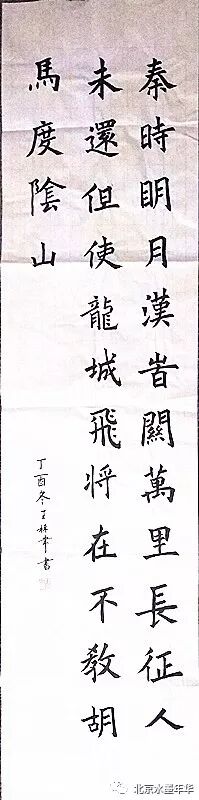 秦時明月漢旹關萬里長征人
未還但使龍城飛将在不教胡
馬度陰山
丁酉冬王書
北京水墨年华